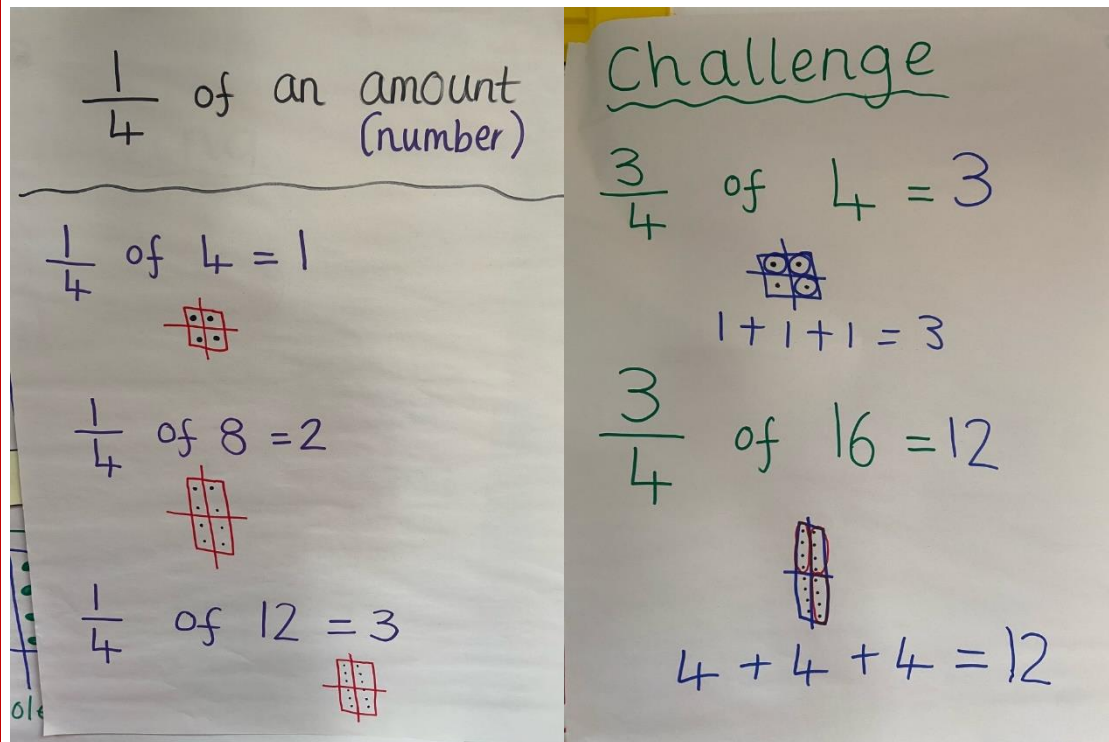 1/4 of an amount
(number)
1/4 of 4 = 1
1/4 of 8 = 2
1/4 of 12 = 3
Challenge
3/4 of 4 = 3
1 + 1 + 1 = 3
3/4 of 16 = 12
4 + 4 + 4 = 12